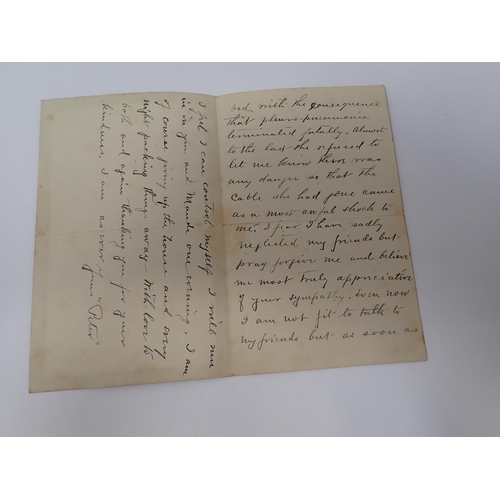 bed, with the consequence
that pleuro-pneumonia
terminated fatally. Almost
to the last she refused to
let me know there was
any danger so that the
Cable she had gone came
as a most awful shock to
me. I fear I have sadly
neglected my friends but
pray forgive me and believe
me most truly appreciative
of your sympathy. Even now
I am not fit to talk to
my friends but as soon as
I feel I can control myself I will run
in on you and Maude one evening. I am
of course giving up the house and every
night packing things away – With love to
both and again thanking you for your
kindness, I am as ever
yours "Peter"